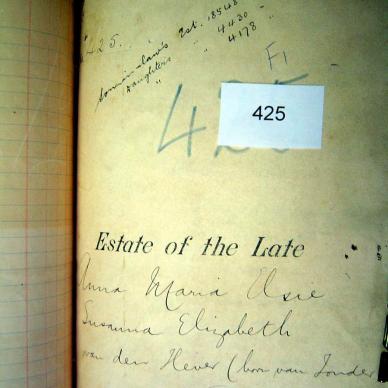 425.
Son-in-law's Est. 18548
Daughters " 4430
" " 4178
F1
425
425
Estate of the Late
Anna Maria Elsie
Susanna Elizabeth
van den Hever (born van Tonder